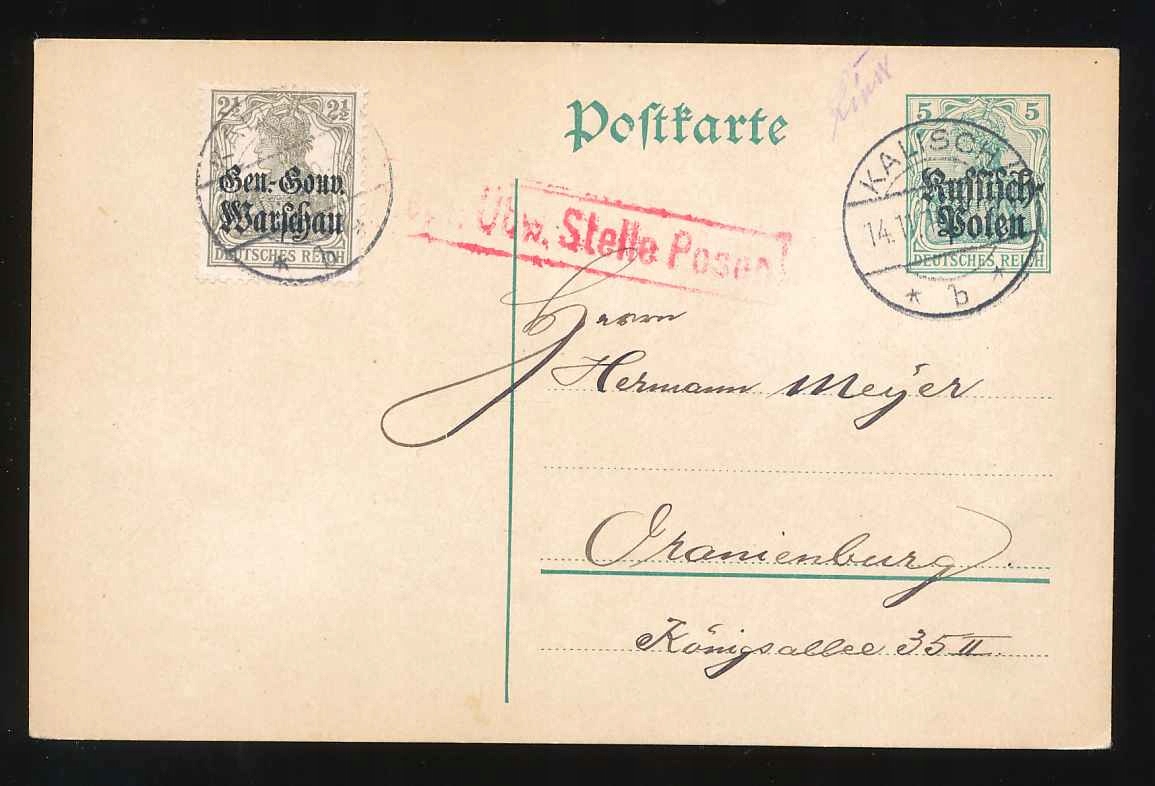 2½ 2½
Gen.-Gouv.
Warschau
DEUTSCHES REICH
* b *
Postkarte
5 5
Russisch-
Polen
DEUTSCHES REICH
KALISCH
14.1
* b *
Übw. Stelle Posen
Herrn
Hermann Meyer
Oranienburg.
Königsallee 35 II